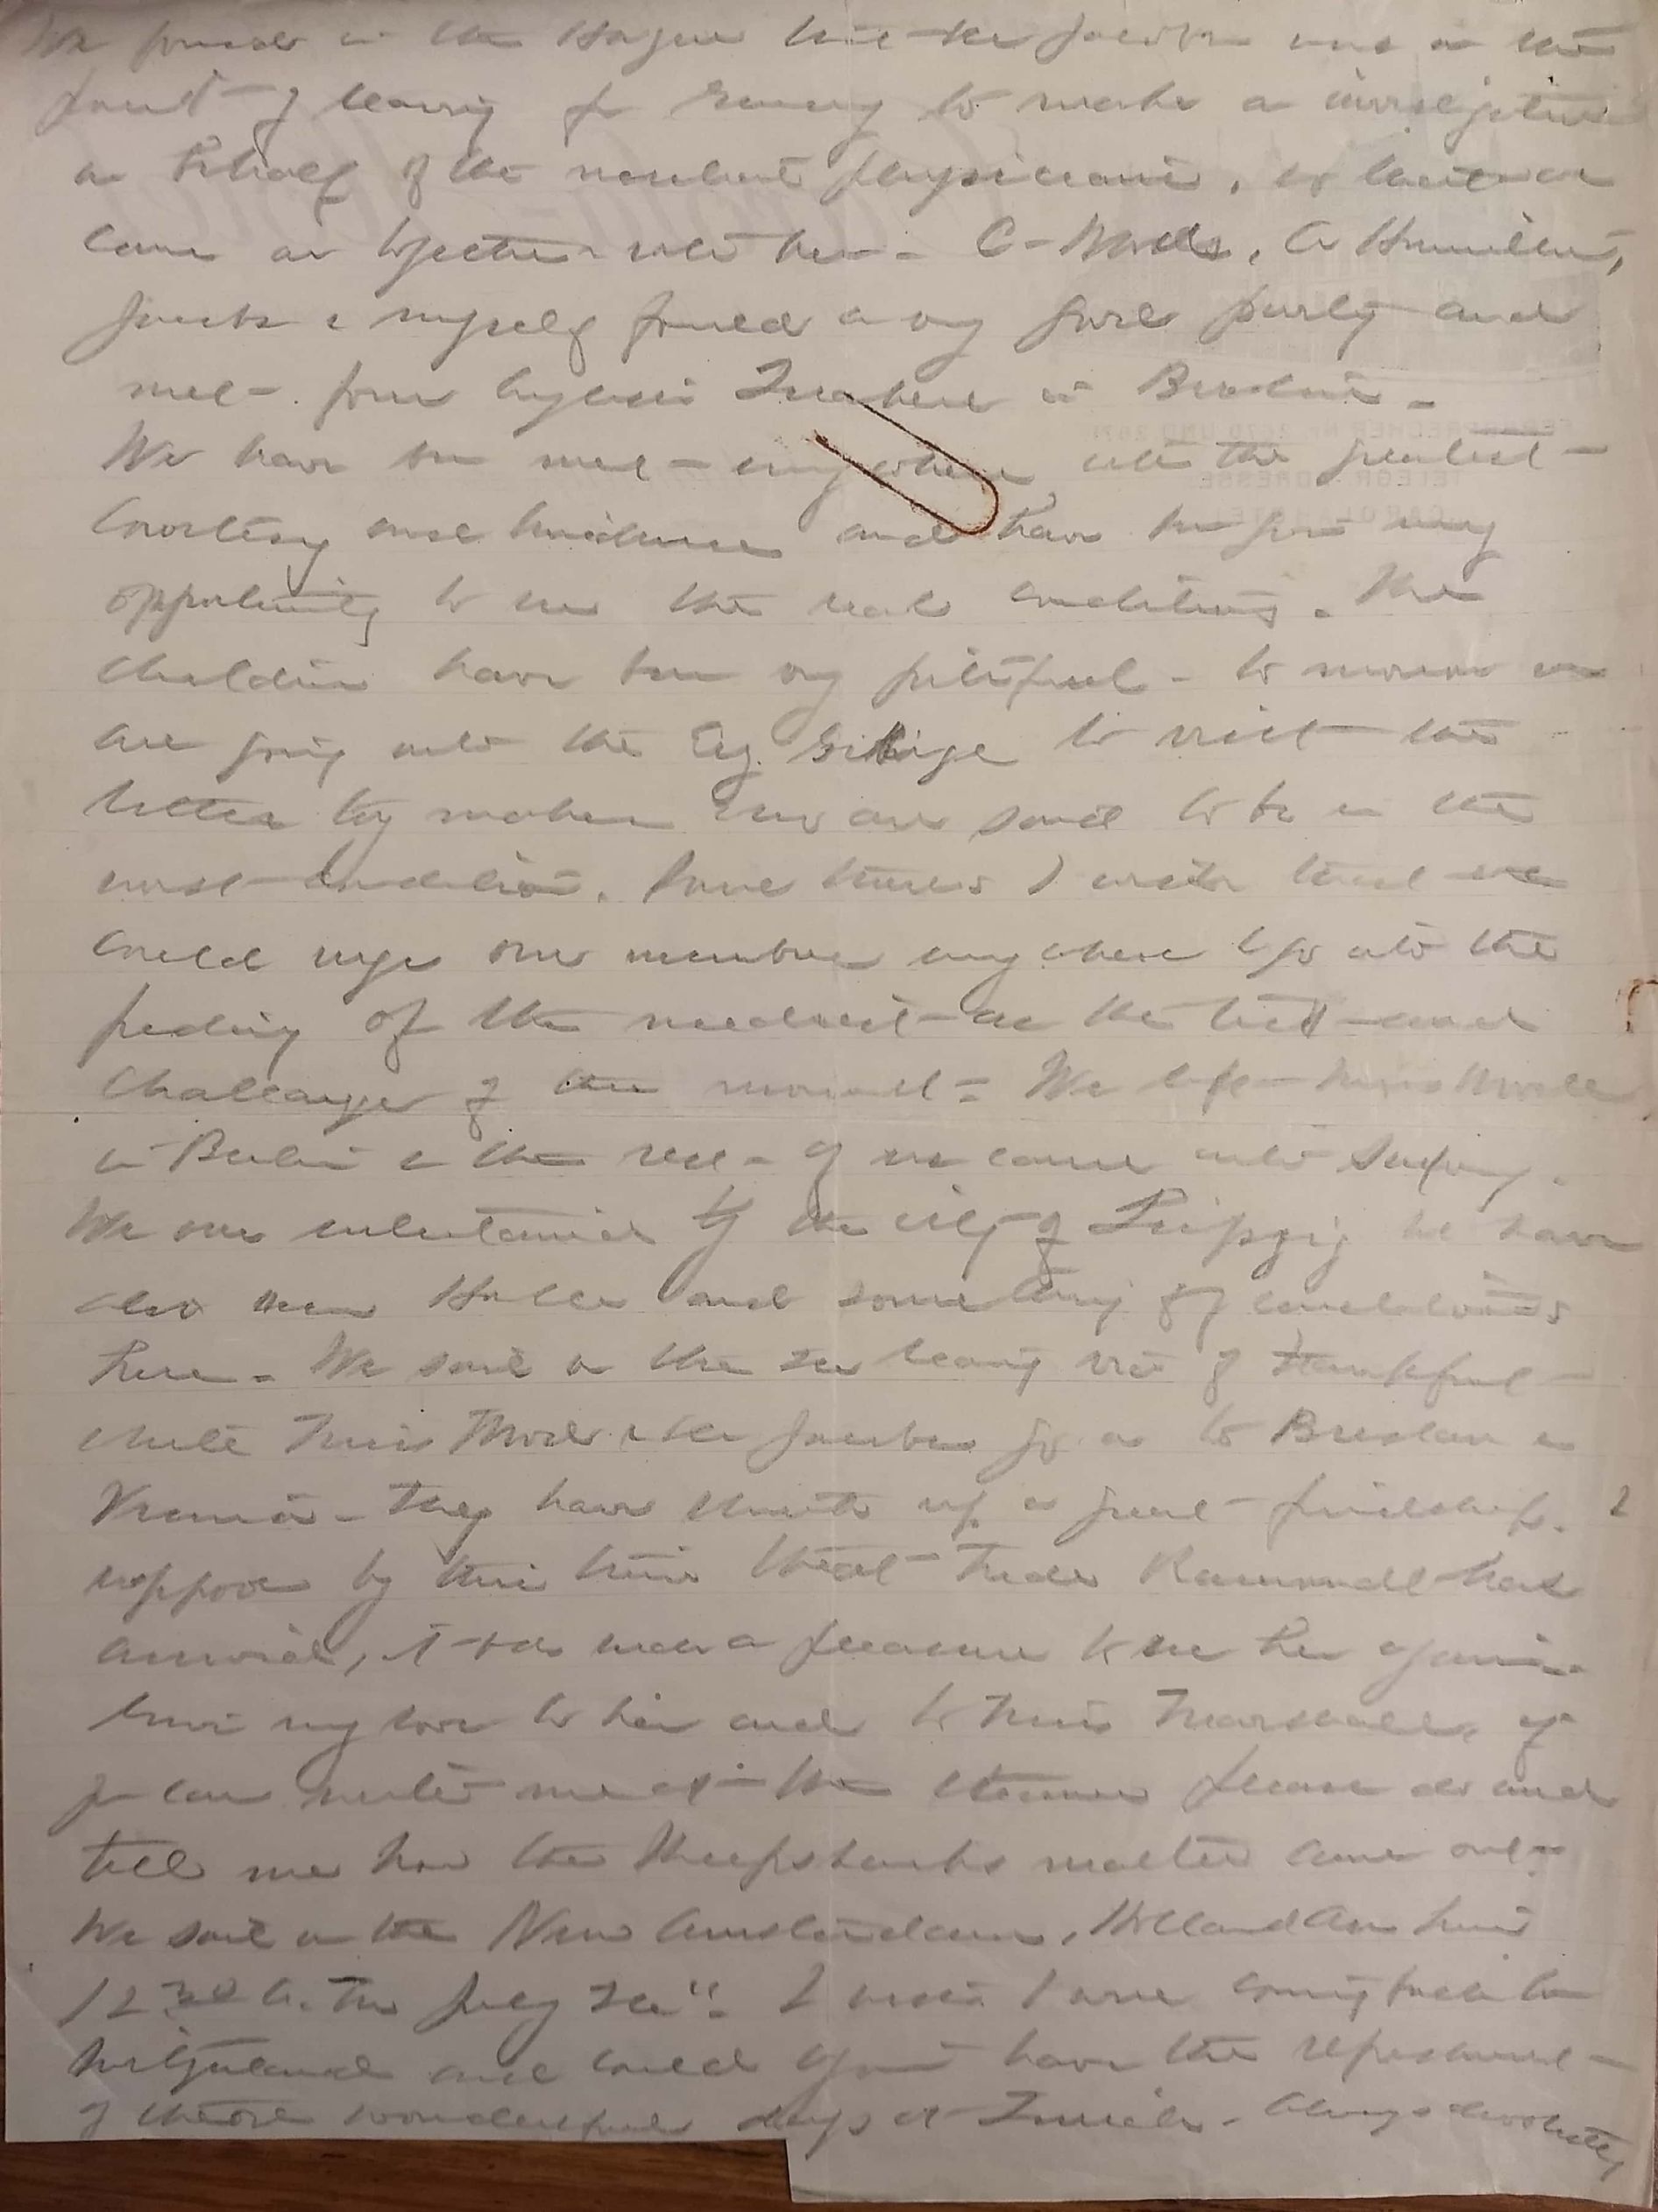 We found in the Hague that Dr Jacobs was on the
point of leaving for Germany to make a investigation
on behalf of the neutral physicians, so that we
came on together with her - C- Woods, A Hamilton,
Jacobs & myself formed a very good party and
met four English Quakers in Berlin -
We have been met everywhere with the greatest
courtesy and kindness and have been given every
opportunity to see the real conditions. The
children have been very pitiful - to morrow we
are going into the Erz Gebirge to visit the
little toy makers who are said to be in the
worst condition. Some times I wish that we
could urge our members everywhere to go into the
feeding of the neediest as the test and
challenge of the moment - We left Miss Wood
in Berlin & the rest of us came into Saxony.
We were entertained by the city of Leipzig we have
also seen Halle and something of conditions
here - We sail on the
while Miss Wood & Dr Jacobs go on to Breslau &
Vienna - they have struck up a great friendship. I
suppose by this time that Mrs has
arrived, it was such a pleasure to see her again
Give my love to her and to Miss Marshall, if
you can write me at the steamer please do and
tell me how the Sheepshanks matter came out -
We sail on the New Amsterdam, Holland Am Line
12 30 A. M. July I wish I were coming back to
Switzerland and could again have the refreshment
of those wonderful days at Zurich - Always devotedly
FERNSPRECHER Nr 2670 UND 2671
TELEGR. ADRESSE
CAROLAHOTEL